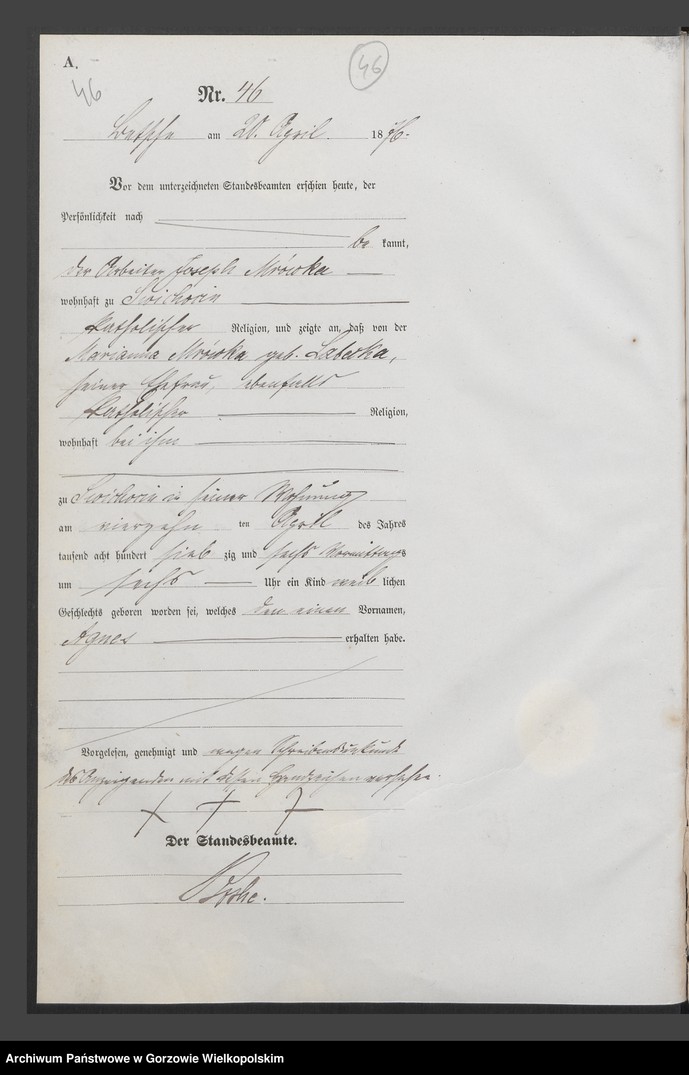 A.
46
46
Nr. 46
Betsche am 20. April 1876.
Vor dem unterzeichneten Standesbeamten erschien heute, der
Persönlichkeit nach
be kannt,
der Arbeiter Joseph Mrówka
wohnhaft zu Swichocin
katholischer Religion, und zeigte an, daß von der
Marianna Mrówka geb. Laberka,
seiner Ehefrau, ebenfalls
katholischer Religion,
wohnhaft bei ihm
zu Swichocin in seiner Wohnung
am vierzehn ten April des Jahres
tausend acht hundert sieb zig und sechs Vormittags
um sechs Uhr ein Kind weib lichen
Geschlechts geboren worden sei, welches den einen Vornamen,
Agnes erhalten habe.
Vorgelesen, genehmigt und wegen Schreibensunkunde
des Anzeigenden mit dessen Handzeichen versehen.
+ + +
Der Standesbeamte.
Archiwum Państwowe w Gorzowie Wielkopolskim